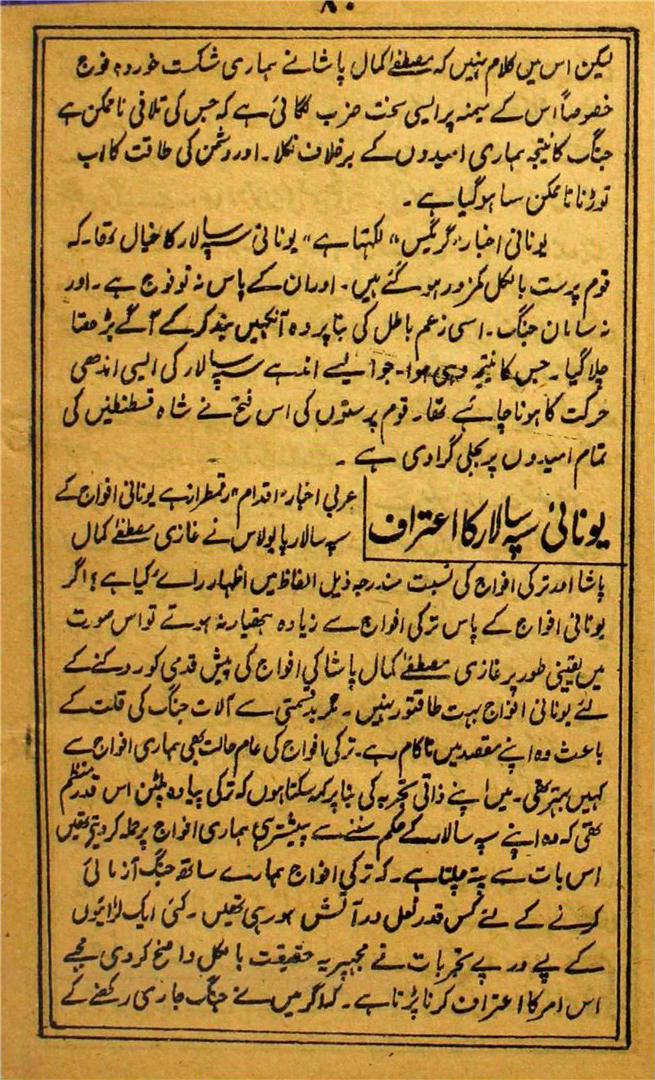 ۸۰
لیکن اس میں کلام نہیں کہ مصطفےٰ کمال پاشا نے ہماری شکست خوردہ فوج
خصوصاً اس کے میمنہ پر ایسی سخت ضرب لگائی ہے کہ جس کی تلافی ناممکن ہے
جنگ کا نتیجہ ہماری امیدوں کے برخلاف نکلا۔ اور دشمن کی طاقت کا اب
توڑنا ناممکن سا ہوگیا ہے۔
یونانی اخبار "گرئیس" لکھتا ہے "یونانی سپہ سالار کا خیال تھا۔ کہ
قوم پرست بالکل کمزور ہو گئے ہیں۔ اور ان کے پاس نہ تو فوج ہے۔ اور
نہ سامان جنگ۔ اسی زعم باطل کی بنا پر وہ آنکھیں بند کر کے آگے بڑھتا
چلا گیا۔ جس کا نتیجہ وہی ہوا۔ جو ایسے اندھے سپہ سالار کی ایسی اندھی
حرکت کا ہونا چاہئے تھا۔ قوم پرستوں کی اس فتح نے شاہ قسطنطین کی
تمام امیدوں پر بجلی گرا دی ہے۔
یونانی سپہ سالار کا اعتراف
عربی اخبار "اقدام" رقمطراز ہے یونانی افواج کے
سپہ سالار پاپولاس نے غازی مصطفےٰ کمال
پاشا اور ترکی افواج کی نسبت مندرجہ ذیل الفاظ میں اظہار رائے کیا ہے؟ اگر
یونانی افواج کے پاس ترکی افواج سے زیادہ ہتھیار نہ ہوتے تو اس صورت
میں یقینی طور پر غازی مصطفےٰ کمال پاشا کی افواج کی پیش قدمی کو روکنے کے
لئے یونانی افواج بہت طاقتور نہیں۔ مگر بدقسمتی سے آلات جنگ کی قلت کے
باعث وہ اپنے مقصد میں ناکام رہے۔ ترکی افواج کی عام حالت بھی ہماری افواج سے
کہیں بہتر تھی۔ میں اپنے ذاتی تجربہ کی بنا پر کہہ سکتا ہوں کہ ترکی پیادہ پلٹن اس قدر منظم
تھی کہ وہ اپنے سپہ سالار کے حکم سننے سے پیشتر ہی ہماری افواج پر حملہ کر دیتی تھیں
اس بات سے پتہ چلتا ہے۔ کہ ترکی افواج ہمارے ساتھ جنگ آزمائی
کرنے کے لئے کس قدر نعل در آتش ہو رہی تھیں۔ کئی ایک لڑائیوں
کے پے در پے تجربات نے مجھپر یہ حقیقت بالکل واضح کر دی مجھے
اس امر کا اعتراف کرنا پڑتا ہے۔ کہ اگر میں نے جنگ جاری رکھنے کے